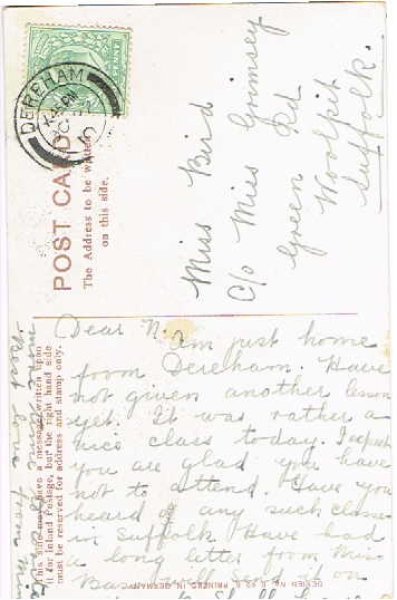 DEREHAM
POST CARD
The Address to be written
on this side.
Miss Bird
C/o Miss Grimsey
Green Rd
Woolpit
Suffolk.
This side may have a message written upon
it for Inland Postage, but the right hand side
must be reserved for address and stamp only.
Dear N.
Am just home
from Dereham. Have
not given another lesson
yet. It was rather a
nice class today. I expect
you are glad you have
not to attend. Have you
heard of any such classes
in Suffolk Have had
a long letter from Miss
it on
PRINTED IN GERMANY